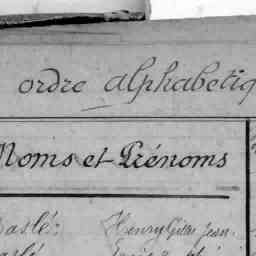 ordre alphabetiq
Noms et Prénoms
Baslé: Henry Gilles Jean